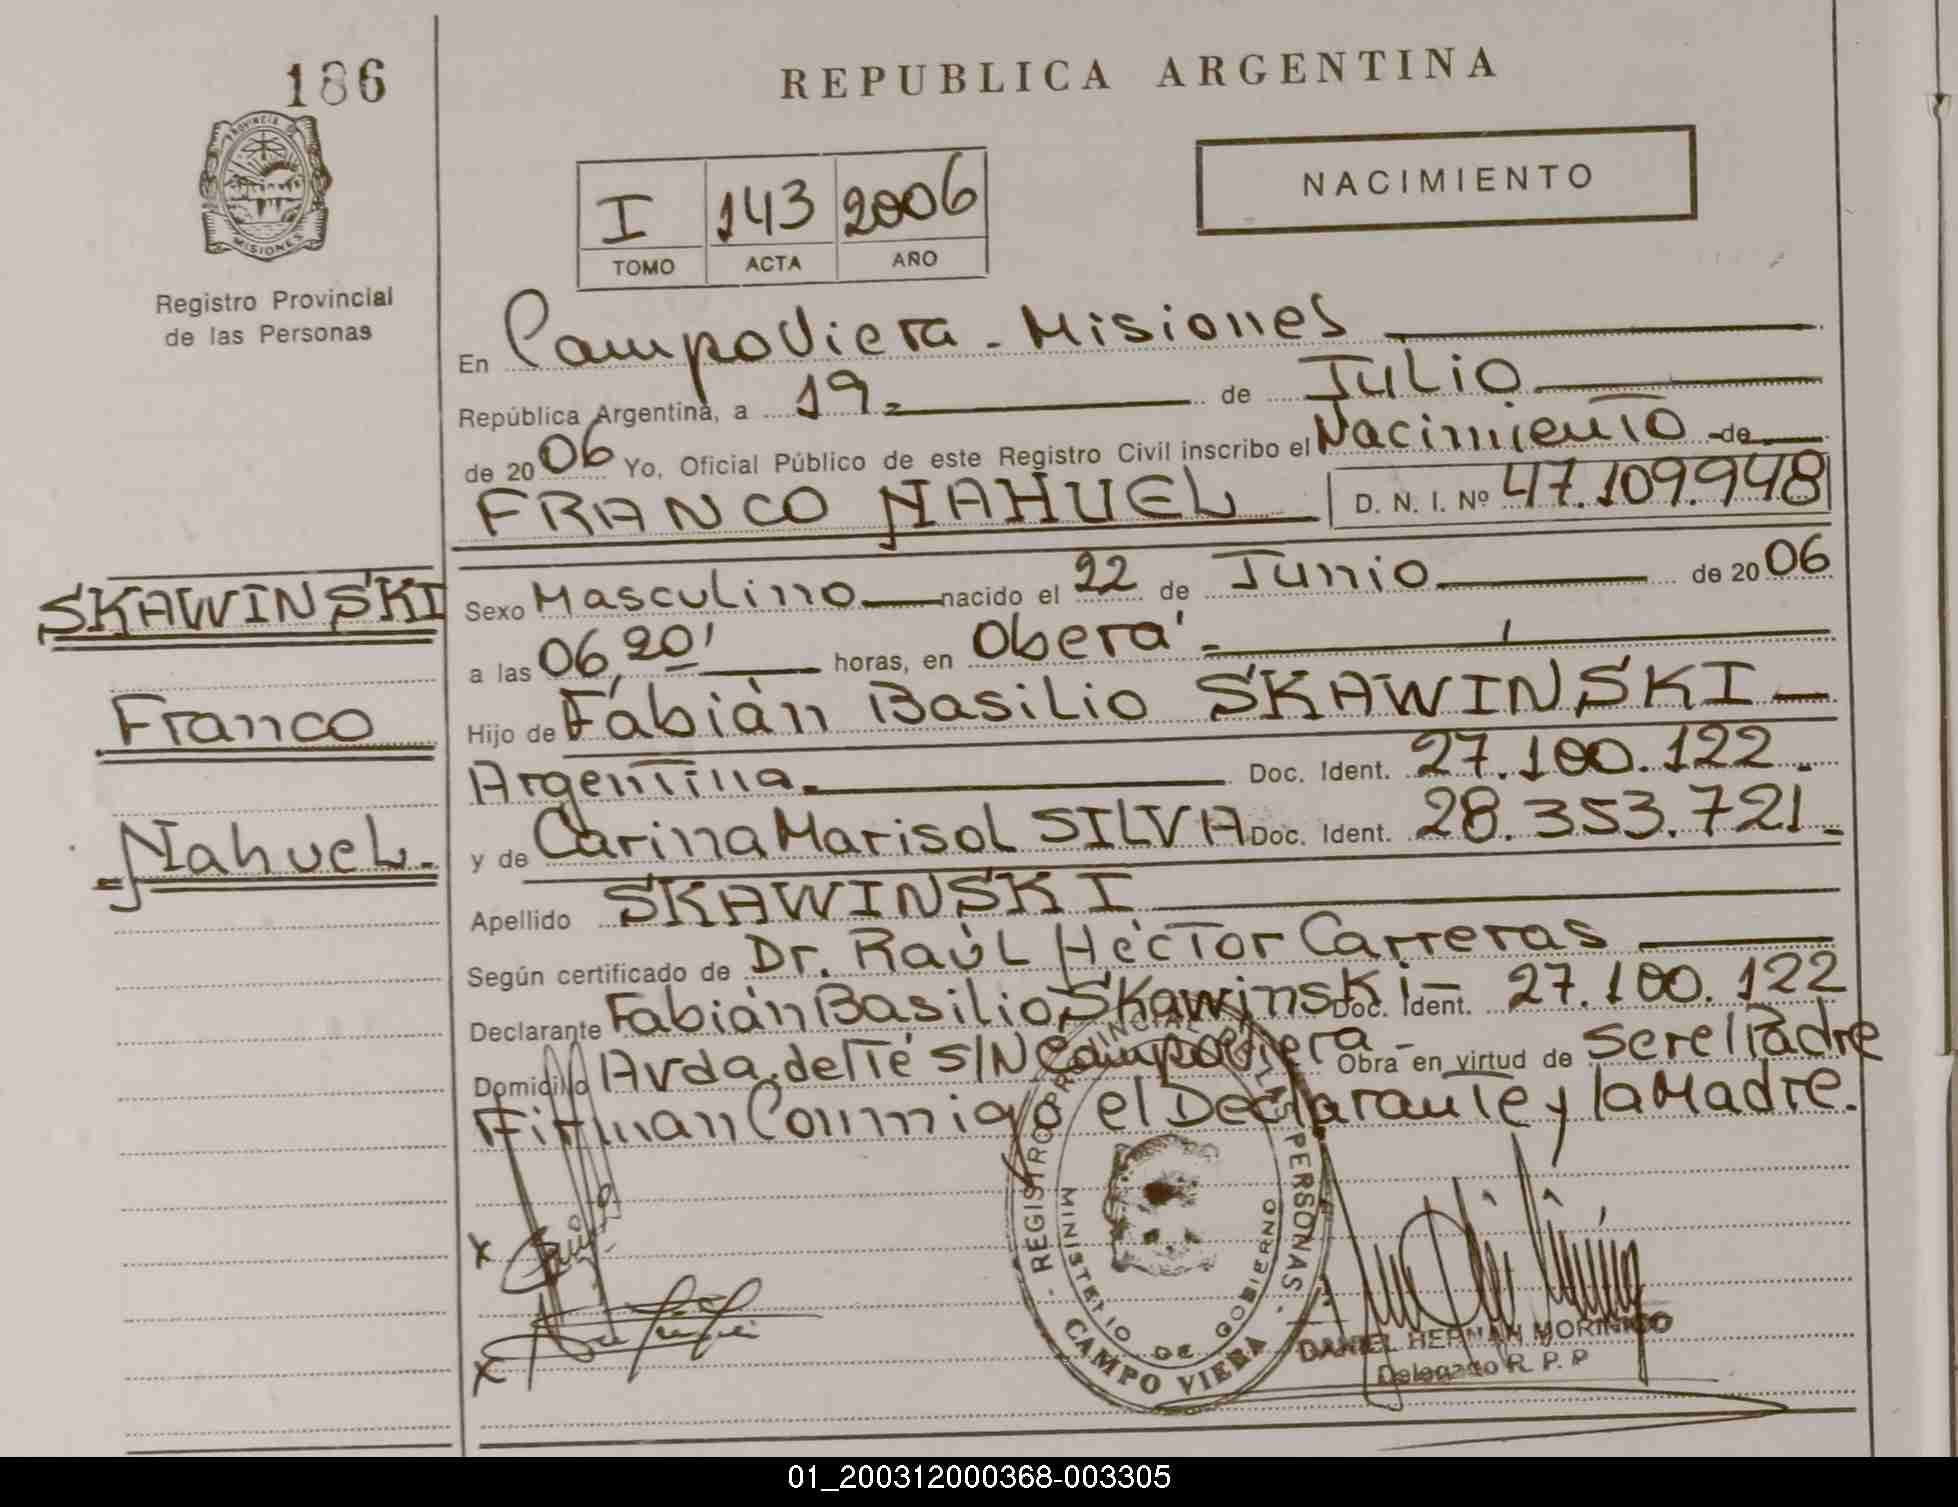 186
PROVINCIA DE
MISIONES
Registro Provincial
de las Personas
SKAWINSKI
Franco
Nahuel.
REPUBLICA ARGENTINA
I 143 2006
TOMO ACTA AÑO
NACIMIENTO
En Campo Viera - Misiones
República Argentina, a 19 de Julio
de 2006 Yo, Oficial Público de este Registro Civil inscribo el Nacimiento de
FRANCO NAHUEL D. N. I. Nº 47.109.948
Sexo Masculino nacido el 22 de Junio de 2006
a las 06,20' horas, en Oberá
Hijo de Fabián Basilio SKAWINSKI
Argentina Doc. Ident. 27.100.122
y de Carina Marisol SILVA Doc. Ident. 28.353.721
Apellido SKAWINSKI
Según certificado de Dr. Raúl Héctor Carreras
Declarante Fabián Basilio Skawinski Doc. Ident. 27.100.122
Domicilio Avda. del Té S/N Campo Viera - Obra en virtud de ser el Padre
Firman Conmigo el Declarante y la Madre.
REGISTRO PROVINCIAL DE LAS PERSONAS
MINISTERIO DE GOBIERNO
CAMPO VIERA
x
x
DANIEL HERNAN MORINIGO
Delegado R. P. P
01_200312000368-003305